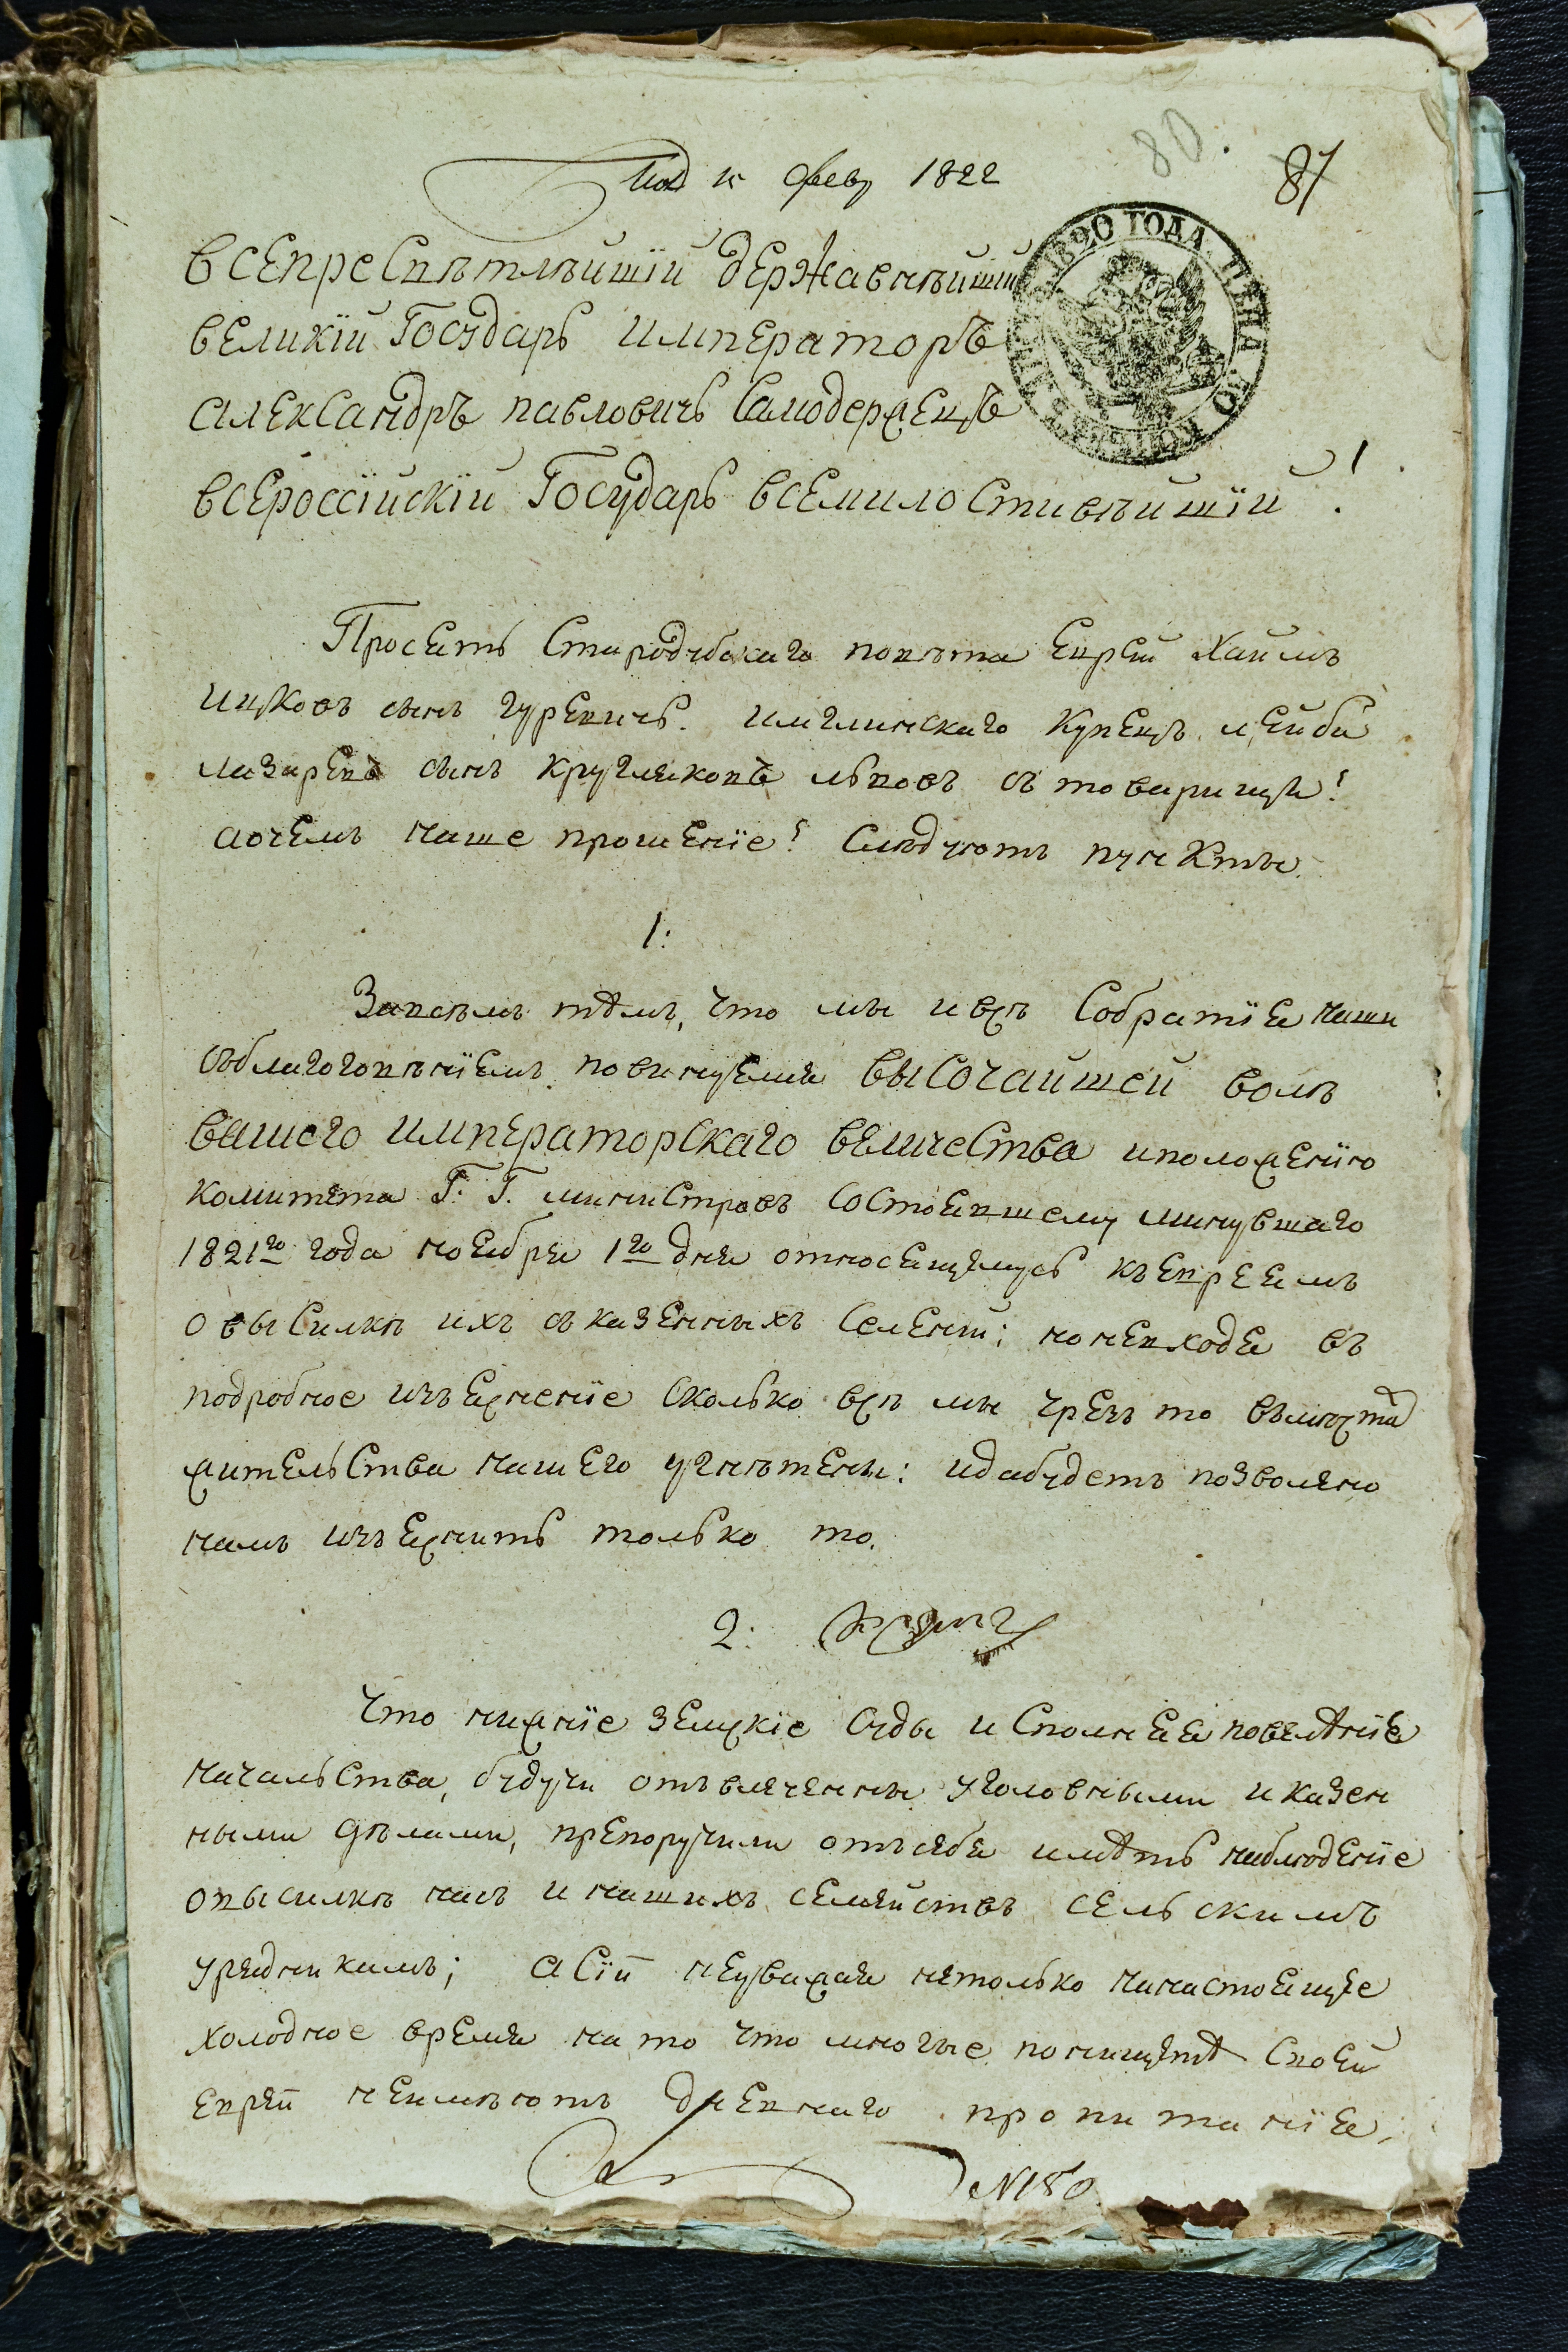 80.
87
февр 1822
1820 ГОДА ЦЕНА
всепресвѣтлѣйшій державнѣйшій
великій Государь императоръ
александръ павловичь Самодержецъ
всероссійскій Государь всемилостивѣйшій!
Просятъ Стародубскаго повѣта Еврей Хаимъ
ицковъ сынъ гуревичь. имглинскаго купецъ лейба
лазаревъ сынъ кругляковъ львовъ съ товарищи!
аочемъ наше прошеніе! Слѣдуютъ пункты
1:
Завсѣмъ тѣмъ, что мы ивсѣ Собратія наши
съблагоговѣніемъ повинуемся высочайшей волѣ
вашего императорскаго величества иположенію
комитета Г: Г. министровъ Состоявшему минувшаго
1821го года ноября 1го дня относящемусь къевреямъ
овысилкѣ ихъ съказенныхъ Селеній; ноневходя въ
подробное изъясненіе сколько всѣ мы чрезъ то вѣмѣста
жительства нашего угнѣтены: идабудетъ позволено
намъ изъяснить только то.
2:
Что нижніе земскіе Суды исполняя повелѣніе
начальства, будучи отвлеченны уголовными иказен
ными дѣлами, препоручили отъсебя имѣть наблюденіе
овысилкѣ насъ инашихъ семействъ сельскимъ
уряднкамъ; а Сіи неуважая нетолько нанастоящее
холодное время на то что многые понищетѣ Своей
еврей неимѣютъ дневнаго пропитанія,
N180.